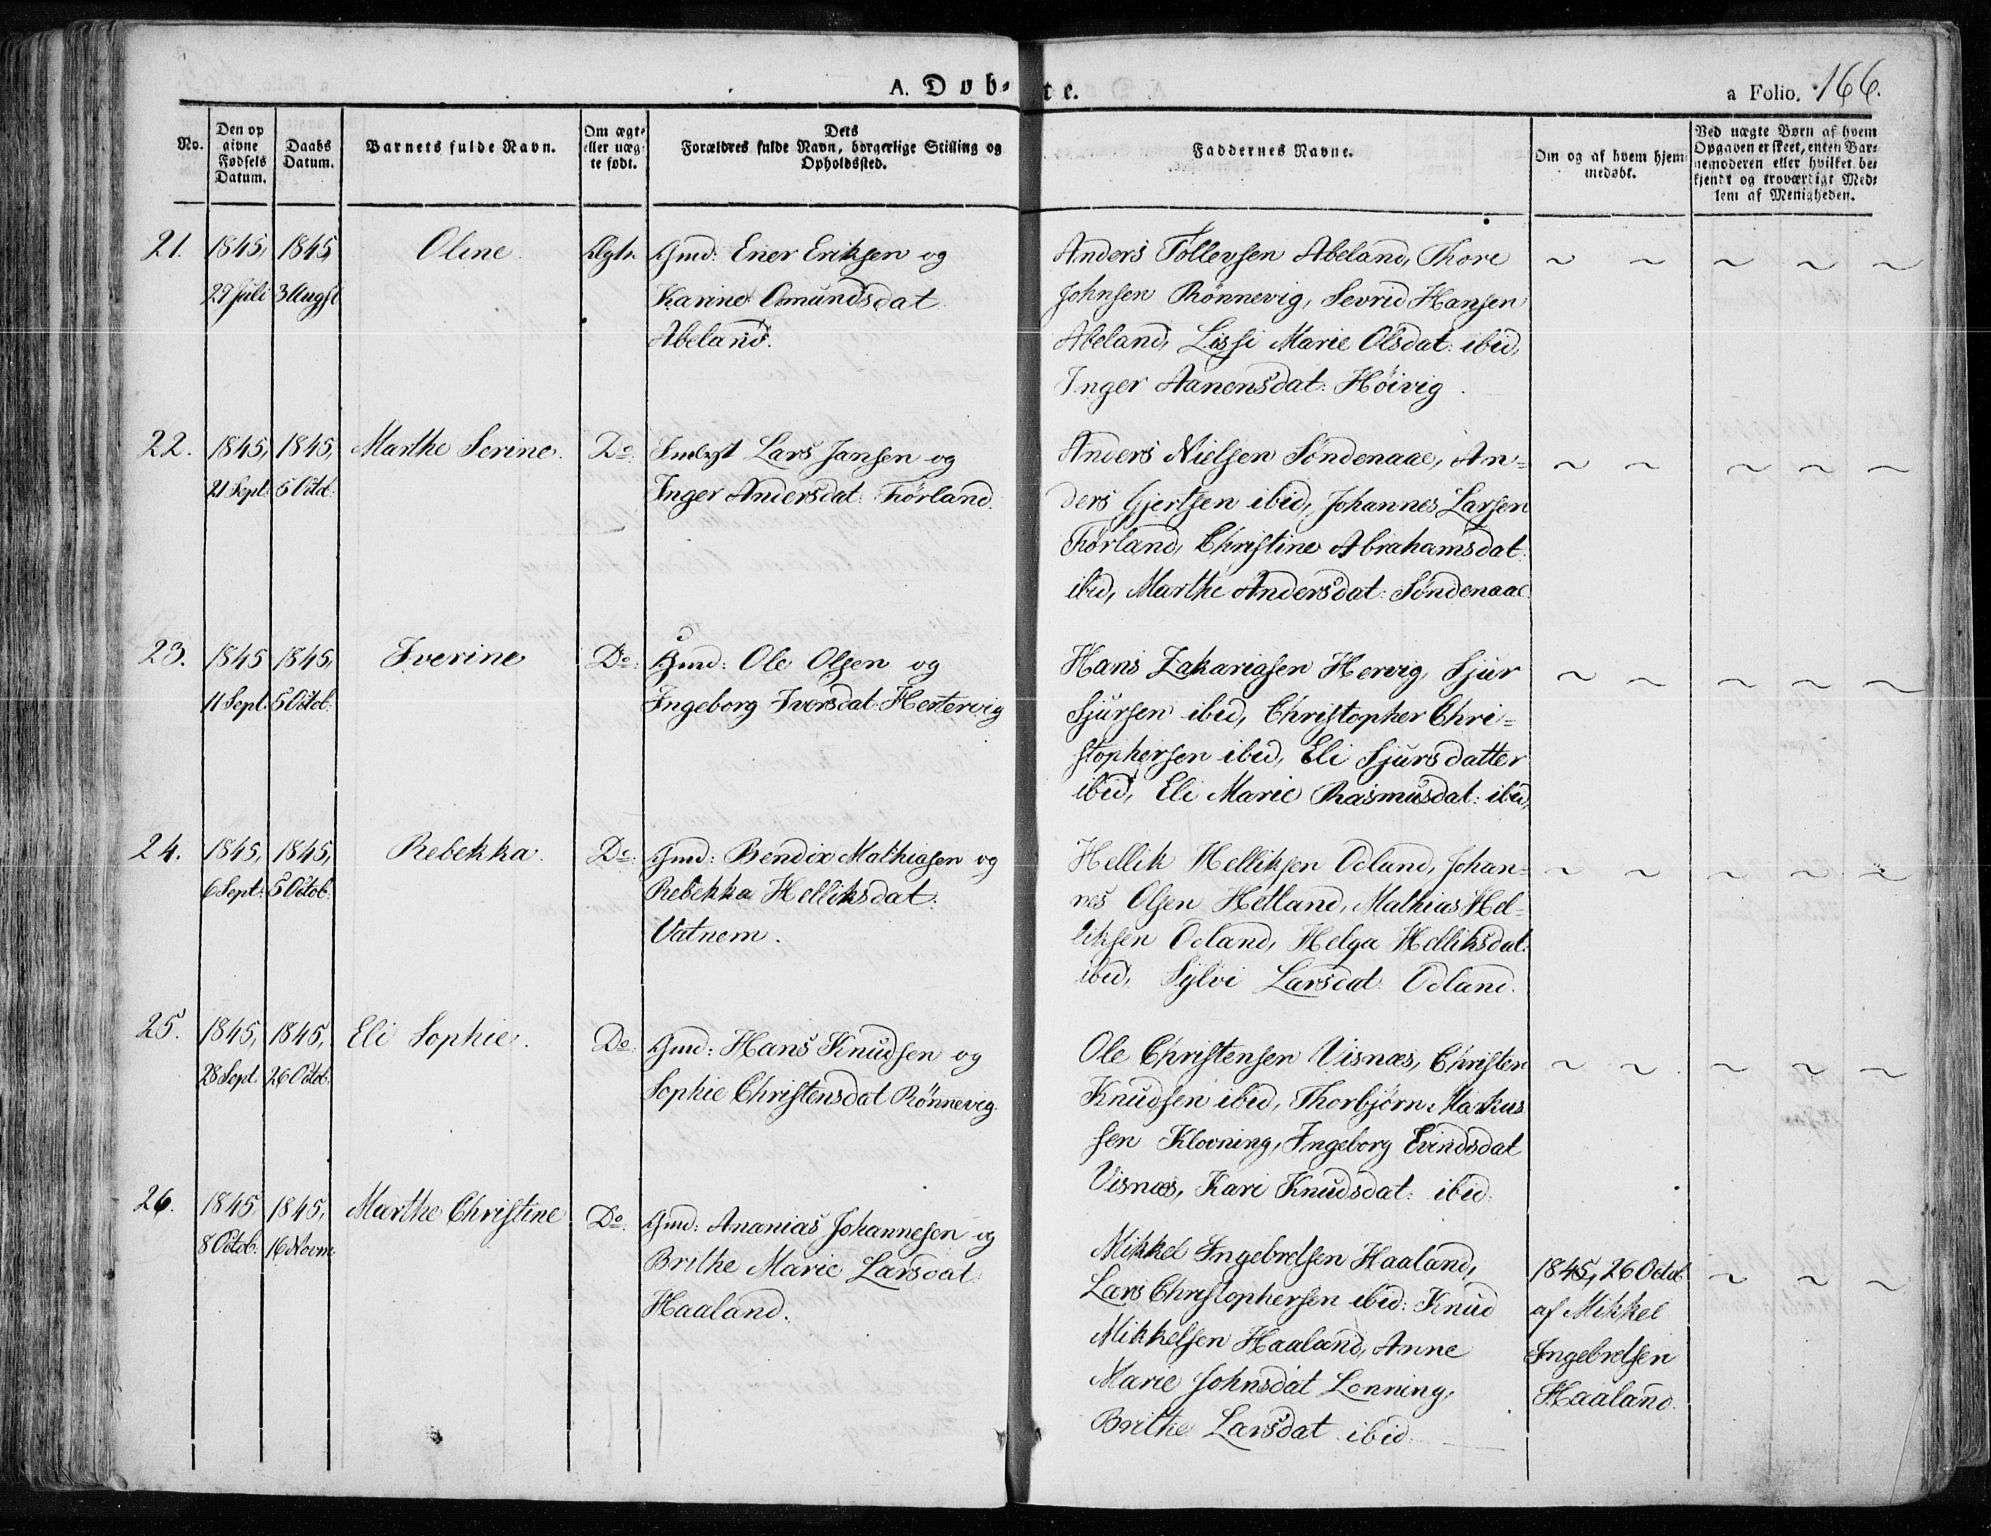 A. Døb-te.
a Folio. 166.
No.
Den op
givne
Fødsels
Datum.
Daabs
Datum.
Barnets fulde Navn.
Om ægte
eller uæg-
te født.
Dets
Forældres fulde Navn, borgerlige Stilling og
Opholdssted.
Faddernes Navne.
Om og af hvem hjem-
medøbt.
Ved uægte Børn af hvem
Opgaven er skeet, enten Bar-
nemoderen eller hvilket be-
kjendt og troværdigt Med-
lem af Menigheden.
21.
1845,
29 Juli
1845,
3 Augst
Oline.
Ægte.
Gmd: Ener Eriksen og
Karine Omundsdat:
Abeland.
Anders Tollevsen Abeland, Thore
Johnsen Rønnevig, Sevrid Hansen
Abeland, Lissi Marie Olsdat: ibid,
Inger Aanensdat: Høivig.
~ ~ ~ ~ ~
22.
1845,
21 Sept:
1845,
5 Octob:
Marthe Serine.
Do.
Indrst Lars Jansen og
Inger Andersdat: Førland.
Anders Nielsen Søndenaae, An-
ders Gjertsen ibid, Johannes Larsen
Førland, Christine Abrahamsdat:
ibid, Marthe Andersdat: Søndenaae.
~ ~ ~ ~ ~
23.
1845
11 Sept:
1845,
5 Octob:
Iverine
Do.
Gmd: Ole Olsen og
Ingeborg Iversdat: Hestervig
Hans Zakariasen Hervig, Sjur
Sjursen ibid, Christopher Chri-
stophersen ibid, Eli Sjursdatter
ibid, Eli Marie Rasmusdat: ibid,
~ ~ ~ ~ ~
24.
1845,
6 Sept:
1845,
5 Octob:
Rebekka.
Do.
Gmd: Bendix Mathiasen og
Rebekka Helliksdat:
Vatnem.
Hellik Helliksen Odland, Johan-
nes Olsen Hetland, Mathias Hel-
liksen Odland, Helga Helliksdat:
ibid, Sylvi Larsdat: Odland.
~ ~ ~ ~ ~
25.
1845,
28 Sept.
1845,
26 Octob.
Eli Sophie.
Do.
Gmd: Hans Knudsen og
Sophie Christensdat Rønnevig.
Ole Christensen Visnæs, Christen
Knudsen ibid, Thorbjørn Markus
sen Klovning, Ingeborg Evindsdat
Visnæs, Kari Knudsdat: ibid.
~ ~ ~ ~ ~
26.
1845,
8 Octob:
1845,
16 Novm:
Marthe Christine
Do.
Gmd: Ananias Johannesen og
Brithe Marie Larsdat:
Haaland.
Mikkel Ingebretsen Haaland,
Lars Christophersen ibid: Knud
Mikkelsen Haaland, Anne
Marie Johnsdat Lonning,
Brithe Larsdat ibid.
1845, 26 Octob.
af Mikkel
Ingebretsen
Haaland.
~ ~ ~